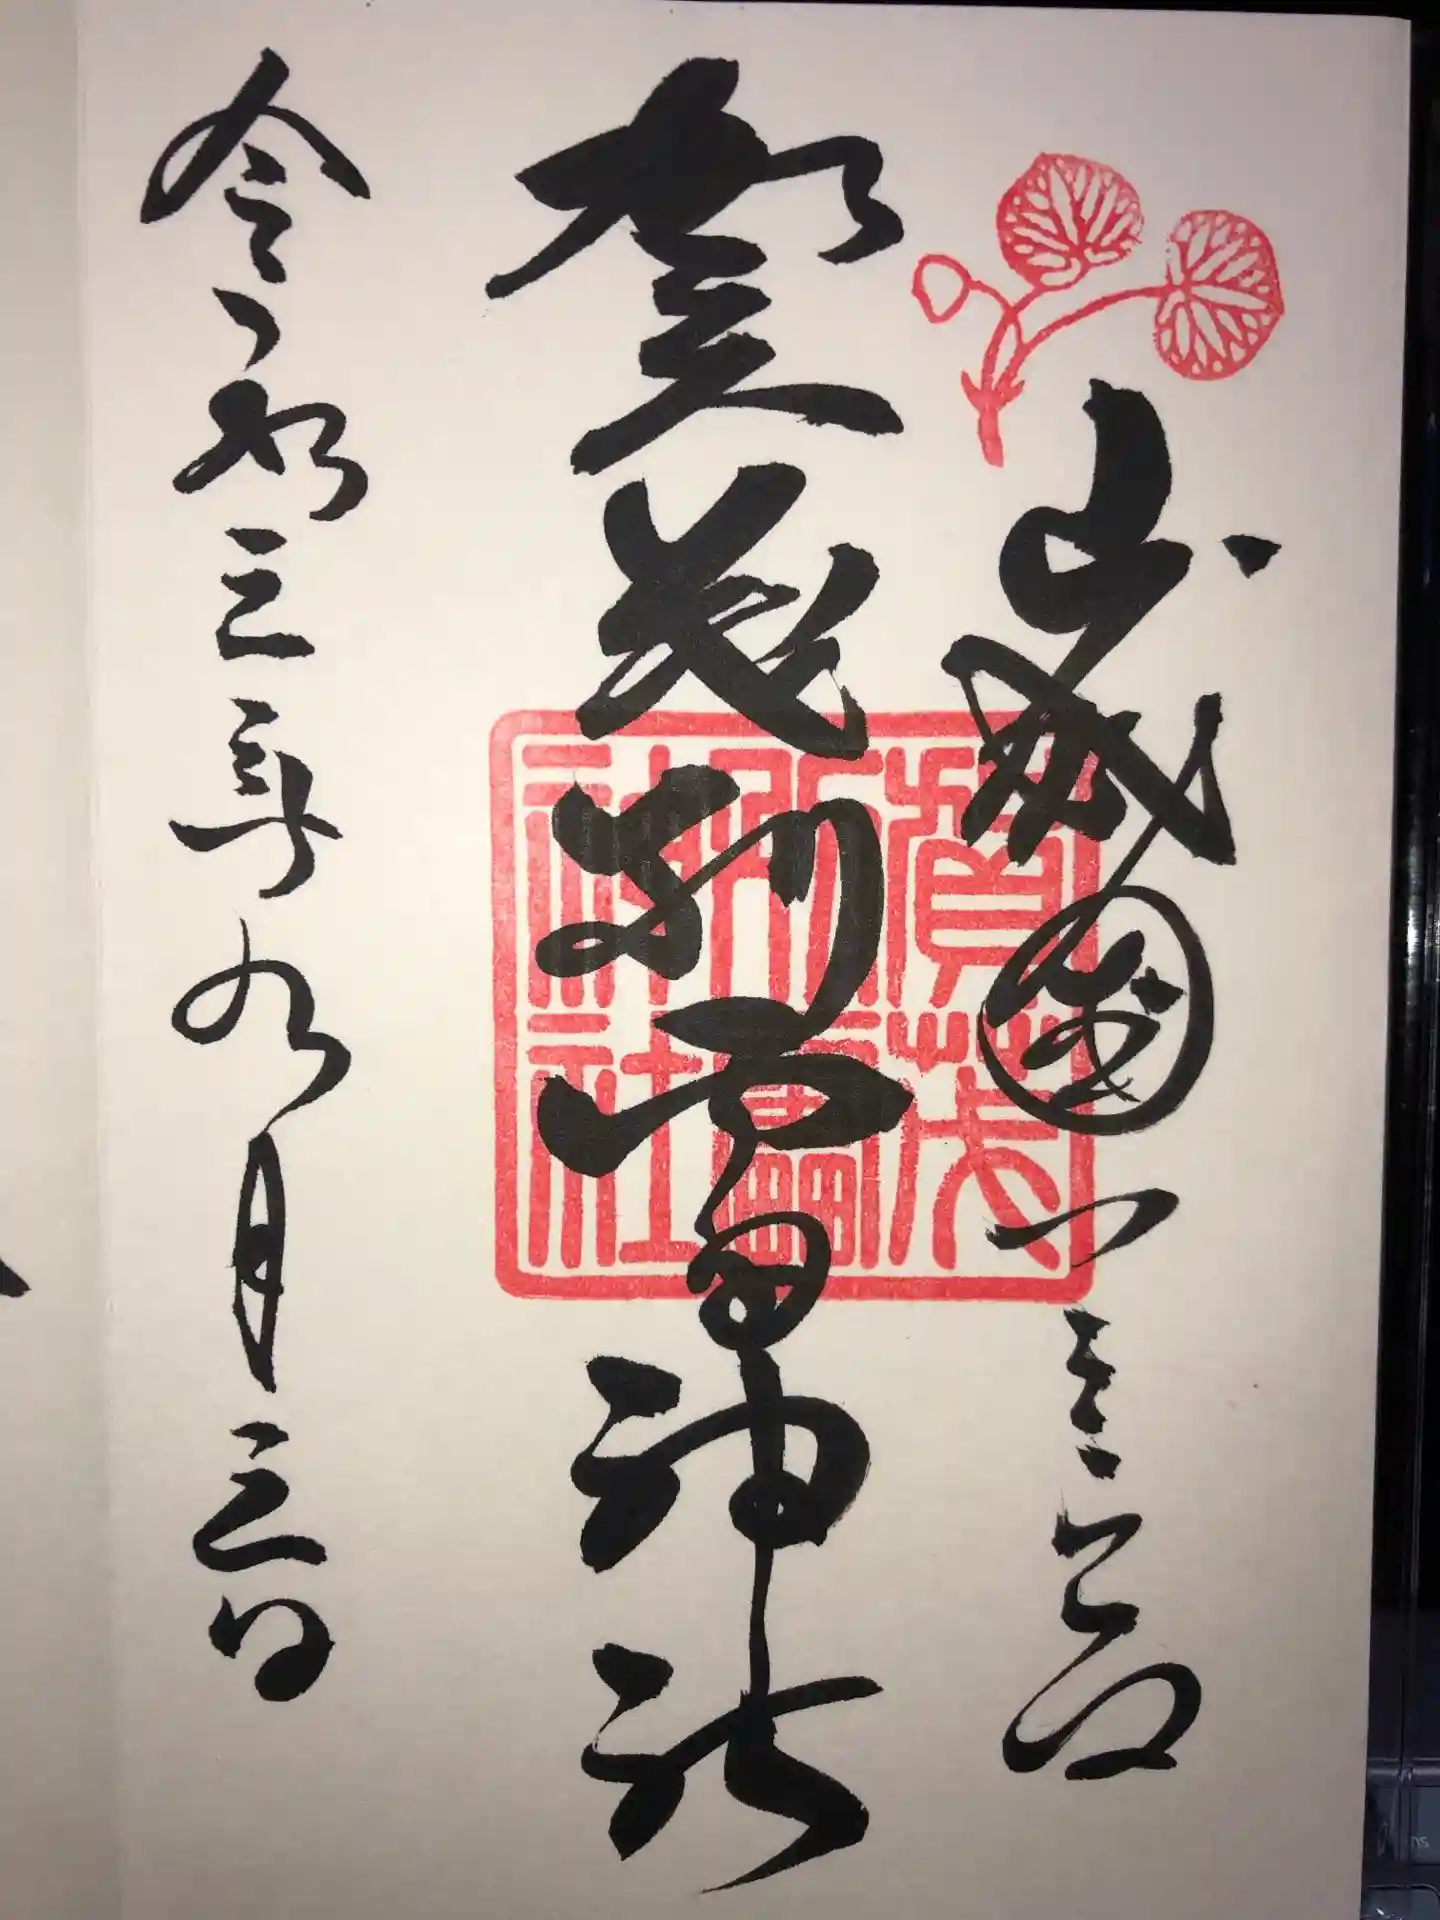 山城國一之宮
賀茂別雷神社
賀茂別雷神社
令和三年九月三日